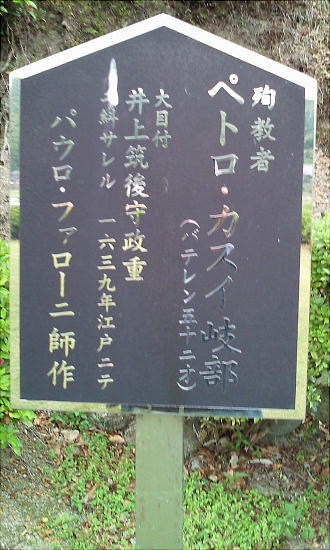 殉教者
ペトロ・カスイ岐部
(バテレン五十二才)
大目付
井上筑後守政重
糾サレル 一六三九年江戸ニテ
パウロ・ファローニ師作